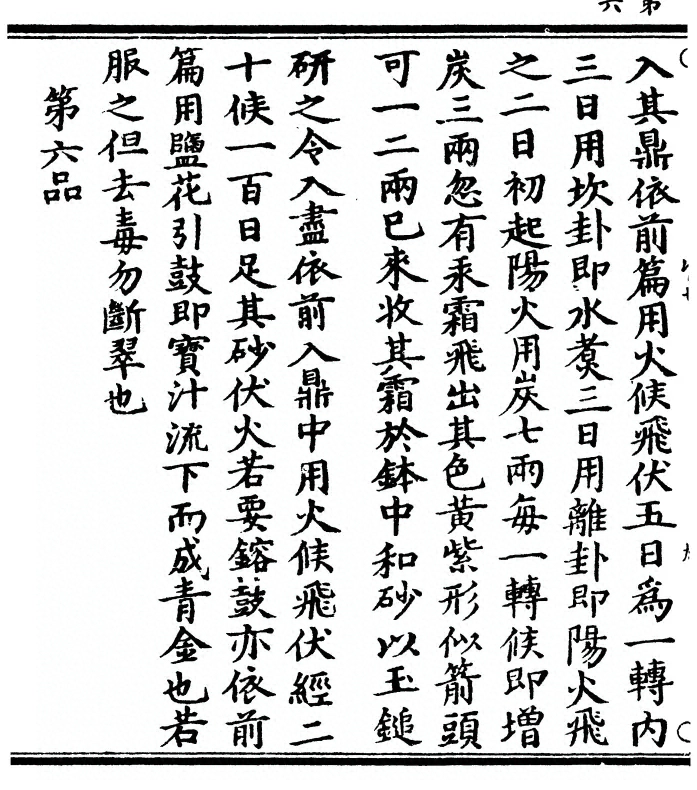 入其鼎依前篇用火候飛伏五日爲一轉内
三日用坎卦即水煑三日用離卦即陽火飛
之二日初起陽火用炭七兩每一轉候即增
炭三兩忽有汞霜飛出其色黄紫形似箭頭
可一二兩巳來收其霜於鉢中和砂以玉鎚
研之令入盡依前入鼎中用火候飛伏經二
十候一百日足其砂伏火若要鎔鼓亦依前
篇用鹽花引鼓即寶汁流下而成青金也若
服之但去毒勿斷翠也
第六品